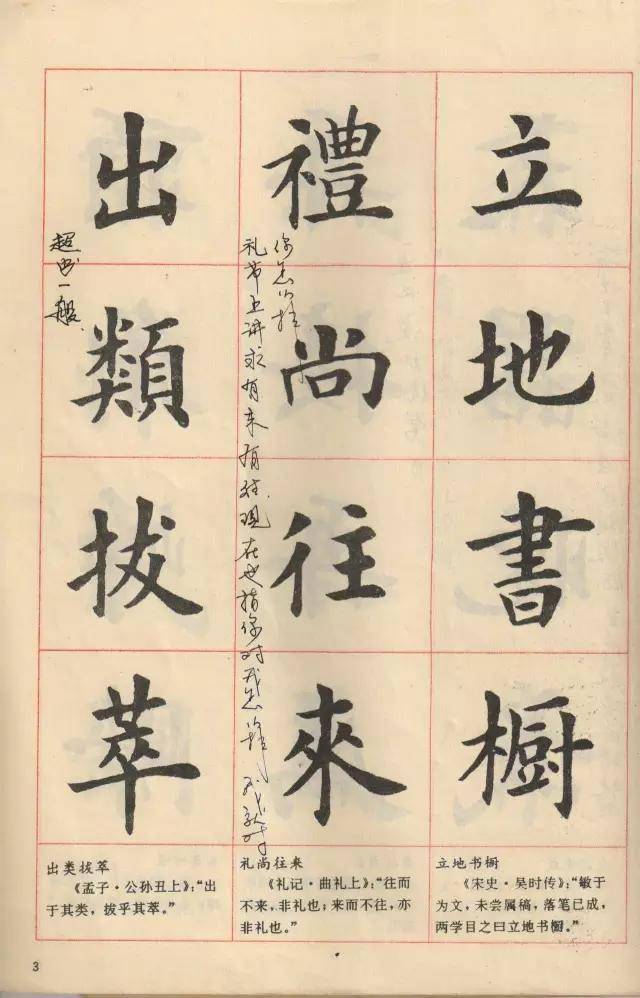 立地書橱
禮尚往來
礼节上讲求有来有往现在也指你对我怎样我就对
你怎么样
出類拔萃
超出一般
出类拔萃
《孟子·公孙丑上》：“出
于其类，拔乎其萃。”
礼尚往来
《礼记·曲礼上》：“往而
不来，非礼也；来而不往，亦
非礼也。”
立地书橱
《宋史·吴时传》：“敏于
为文，未尝属稿，落笔已成，
两学目之曰立地书橱。”
3